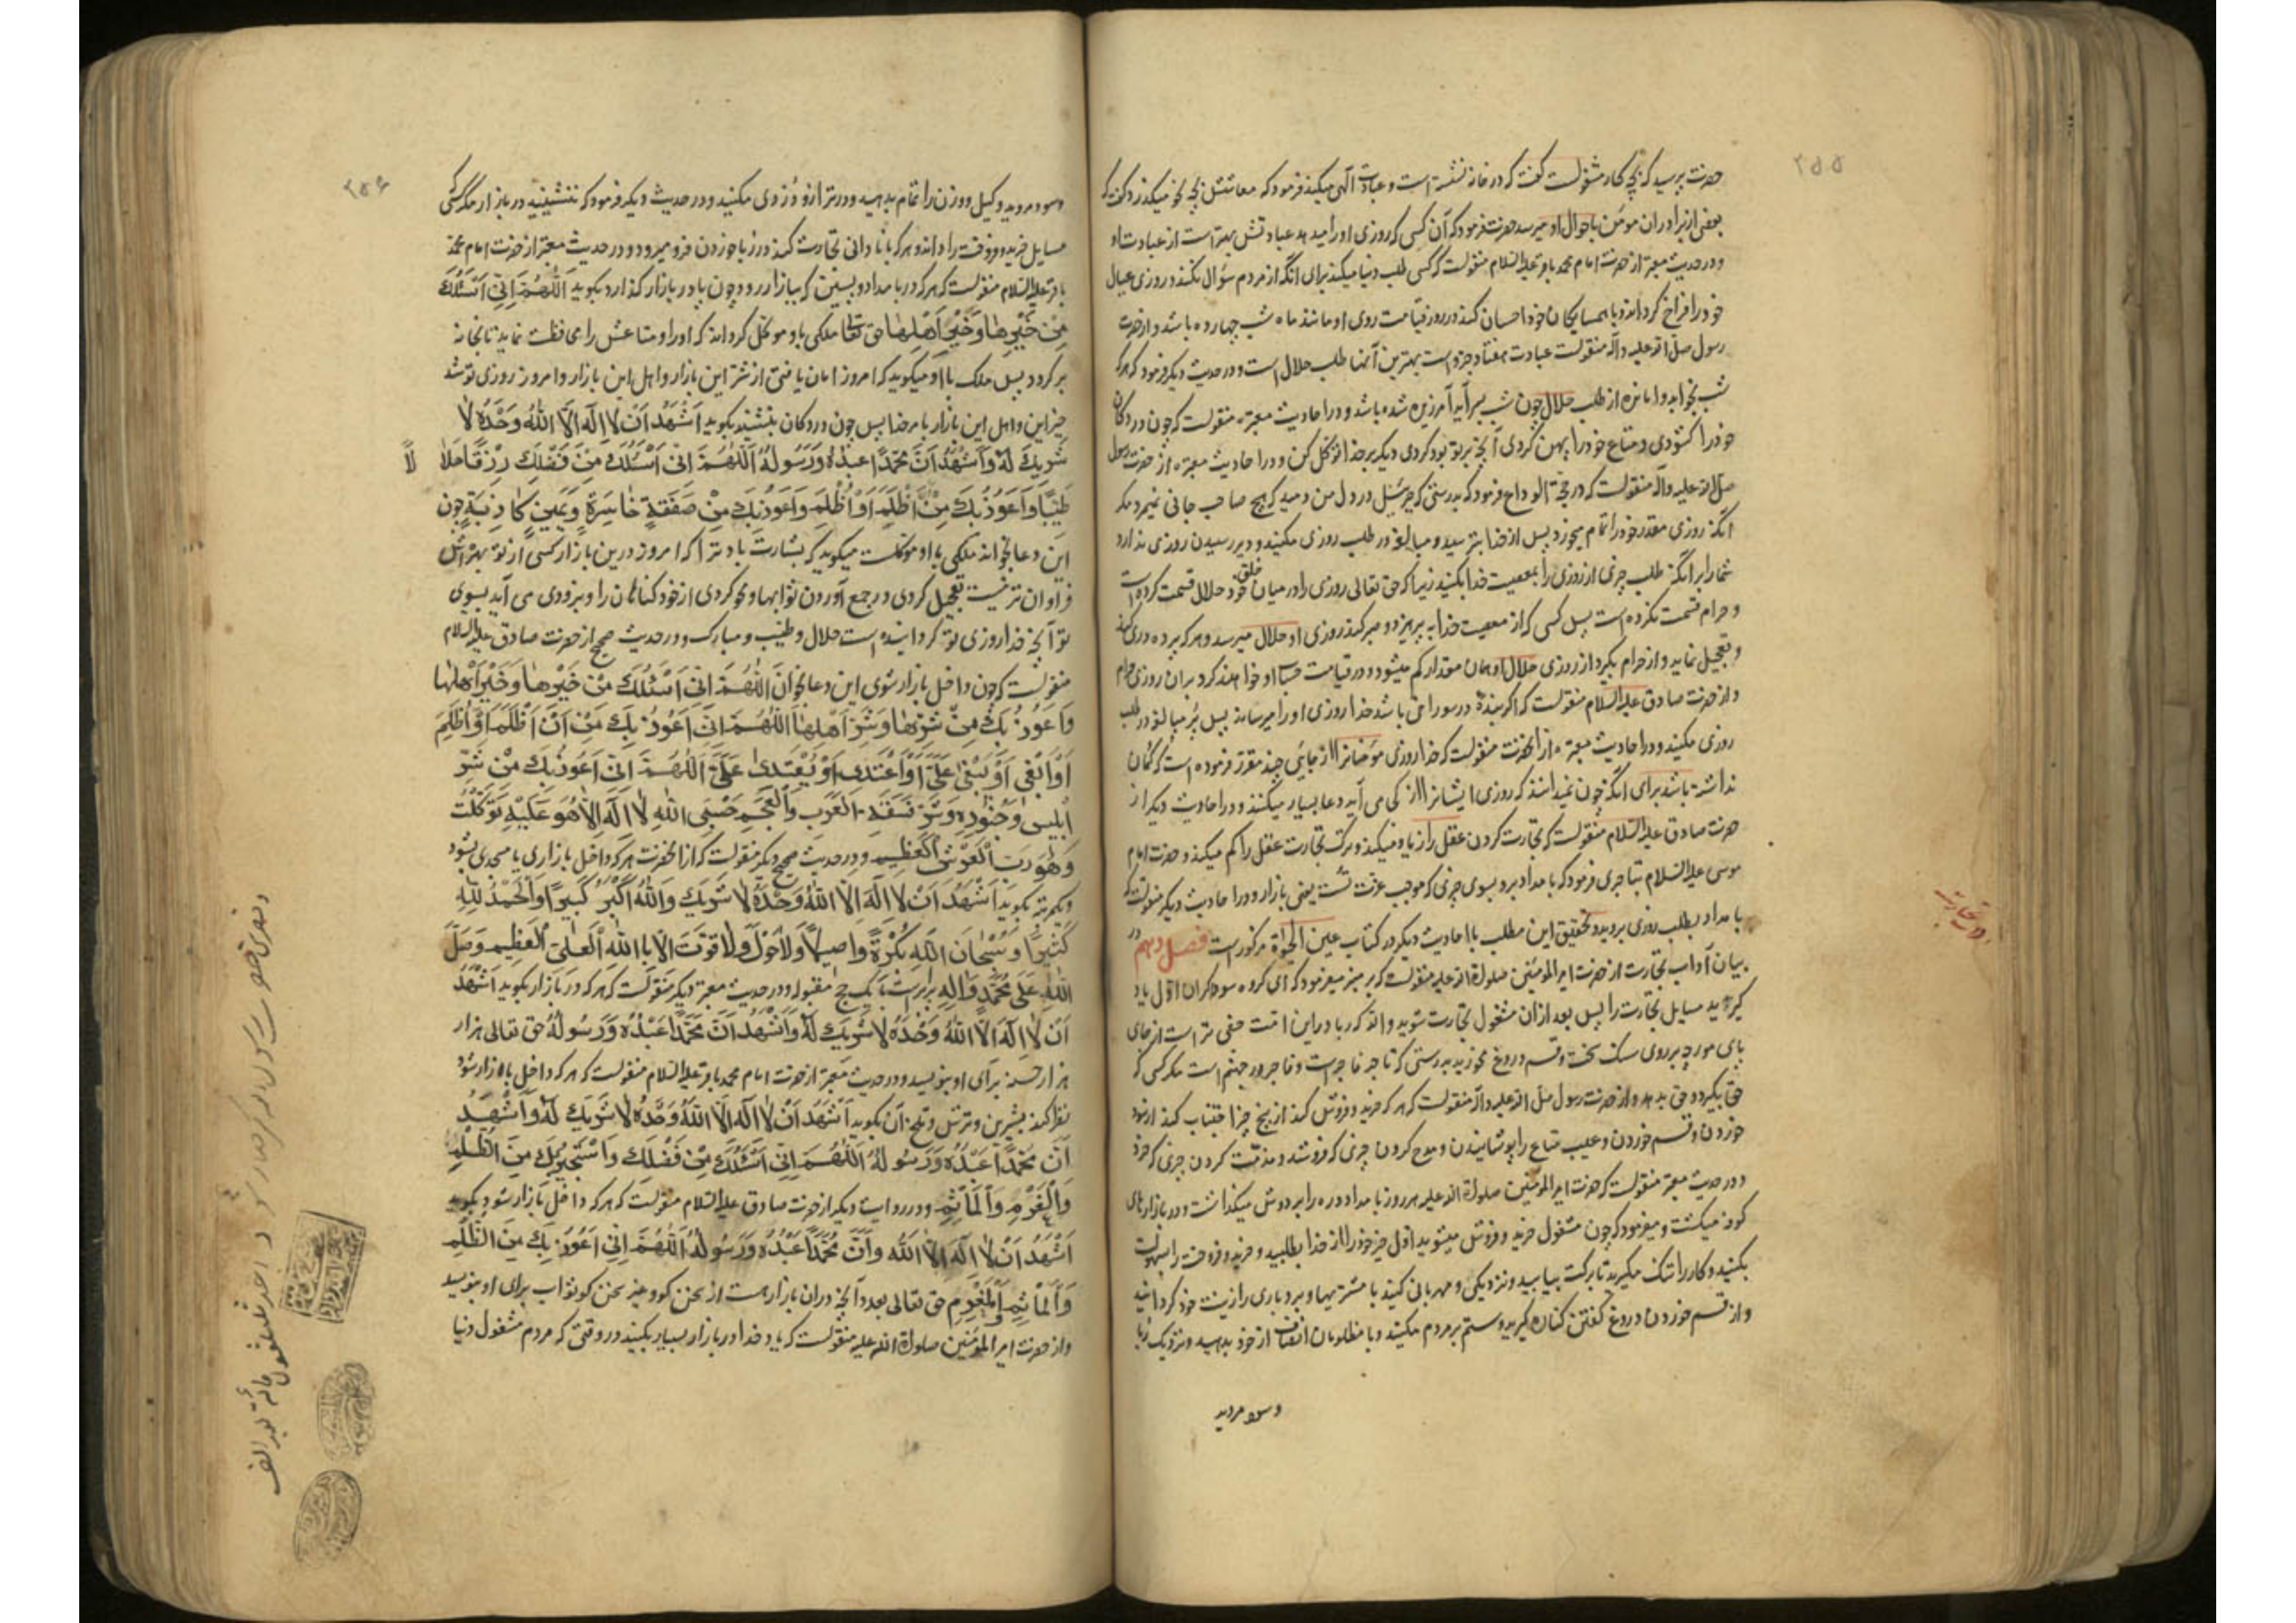 ۲۵۵
حضرت پرسید که بچه کار مشغولست گفت که در خانه نشسته است و عبادت الهی میکند فرمود که معاشش بچه نحو میگذرد گفت که
بعضی از برادران مومن باحوال او میرسد حضرت فرمود که آن کسی که روزی او را میدهد عبادتش بهتر است از عبادت او
و در حدیث معتبر از حضرت امام محمد باقر علیه السلام منقولست که کسی طلب دنیا میکند برای آنکه از مردم سؤال نکند و روزی عیال
خود را فراخ گرداند و با همسایگان خود احسان کند در روز قیامت روی او مانند ماه شب چهارده باشد و از حضرت
رسول صلی الله علیه و آله منقولست عبادت هفتاد جزو است بهترین آنها طلب حلال است و در حدیث دیگر فرمود که هر که
شب بخوابد وامانده از طلب حلال چون شب بسر آید آمرزیده شده باشد و در احادیث معتبره منقولست که چون در دکان
خود را گشودی و متاع خود را پهن کردی آنچه بر تو بود کردی دیگر بر خدا توکل کن و در احادیث معتبره از حضرت رسول
صلی الله علیه و آله منقولست که در حجة الوداع فرمود که بدرستی که جبرئیل در دل من دمید که هیچ صاحب جانی نمیرد مگر
آنکه روزی مقدر خود را تمام میخورد پس از خدا بترسید و مبالغه در طلب روزی مکنید و دیر رسیدن روزی ندارد
شما را بر آنکه طلب چیزی از روزی را بمعصیت خدا بکنید زیرا که حق تعالی روزی را در میان خلق خود حلال قسمت کرده است
و حرام قسمت نکرده است پس کسی که از معصیت خدا بپرهیزد و صبر کند روزی او حلال میرسد و هر که پرده دری کند
و تعجیل نماید و از حرام بگیرد از روزی حلال او همان مقدار کم میشود و در قیامت حساب او خواهند کرد بر آن روزی حرام
و از حضرت صادق علیه السلام منقولست که اگر بندهٔ در سوراخی باشد خدا روزی او را میرساند پس پر مبالغه در طلب
روزی مکنید و در احادیث معتبره از آنحضرت منقولست که خدا روزی مؤمنانرا از جایی چند مقرر فرموده است که گمان
نداشته باشند برای آنکه چون نمیدانند که روزی ایشانرا از کی می آید دعا بسیار میکنند و در احادیث دیگر از
حضرت صادق علیه السلام منقولست که تجارت کردن عقل را زیاد میکند و ترک تجارت عقل را کم میکند و حضرت امام
موسی علیه السلام بتاجری فرمود که بامداد برو بسوی چیزی که موجب عزت تست یعنی بازار و در احادیث دیگر منقولست که
بامداد بطلب روزی بروید و تحقیق این مطلب با احادیث دیگر در کتاب عین الحیوة مذکور است فصل دهم در
بیان آداب تجارت از حضرت امیر المومنین صلوة الله علیه منقولست که بر منبر میفرمود که ای گروه سوداگران اول یاد
گیرید مسایل تجارت را پس بعد از آن مشغول تجارت شوید والله که ربا در این امت مخفی تر است از جای
پای مورچه بر روی سنگ سخت و قسم دروغ مخورید بدرستی که تاجر فاجر است و فاجر در جهنم است مگر کسی که
حق بگیرد و حق بدهد و از حضرت رسول صلی الله علیه و آله منقولست که هر که خرید و فروش کند از پنج چیز اجتناب کند از سود
خوردن و قسم خوردن و عیب متاع را پوشانیدن و مدح کردن چیزی که فروشد و مذمت کردن چیزی که خرد
و در حدیث معتبر منقولست که حضرت امیر المومنین صلوة الله علیه هر روز بامداد دره را بر دوش میگذاشت و در بازارهای
کوفه میگشت و میفرمود که چون مشغول خرید و فروش میشوید اول خیر خود را از خدا بطلبید و خرید و فروخت را بسهولت
بکنید و کار را تنگ مگیرید تا برکت بیابید و نزدیکی و مهربانی کنید با مشتریها و بردباری را زینت خود گردانید
و از قسم خوردن و دروغ گفتن کناره گیرید و ستم بر مردم مکنید و با مظلومان انصاف از خود بدهید و نزدیک ربا
و سود مروید
۲۵۶
و سود مروید و کیل و وزن را تمام بدهید و در ترازو دزدی مکنید و در حدیث دیگر فرمود که ننشینید در بازار مگر کسی که
مسایل خرید و فروخت را داند و هر که بنادانی تجارت کند در ربا خوردن فرو میرود و در حدیث معتبر از حضرت امام محمد
باقر علیه السلام منقولست که هر که در بامداد و پسین که ببازار رود و چون پا در بازار گذارد بگوید اَللّهُمَّ اِنّی اَسْئَلُکَ
مِنْ خَیْرِها وَخَیْرِ اَهْلِها حق تعالی ملکی باو موکل گرداند که او را و متاعش را محافظت نماید تا بخانه
برگردد پس ملک باو میگوید که امروز امان یافتی از شر این بازار و اهل این بازار و امروز روزی تو شد
خیر این و اهل این بازار بامر خدا پس چون در دکان بنشیند بگوید اَشْهَدُ اَنْ لا اِلهَ اِلَّا اللهُ وَحْدَهُ لا
شَریکَ لَهُ وَاَشْهَدُ اَنَّ مُحَمَّداً عَبْدُهُ وَرَسُولُهُ اَللّهُمَّ اِنّی اَسْئَلُکَ مِنْ فَضْلِکَ رِزْقاً حَلالاً
طَیِّباً وَاَعُوذُ بِکَ مِنْ اَنْ اَظْلِمَ اَوْ اُظْلَمَ وَاَعُوذُ بِکَ مِنْ صَفْقَةٍ خاسِرَةٍ وَیَمینٍ کاذِبَةٍ چون
این دعا بخواند ملکی که باو موکلست میگوید که بشارت باد ترا که امروز درین بازار کسی از تو بهره اش
فراوان تر نیست تعجیل کردی در جمع آوردن ثوابها و محو کردی از خود گناهان را و بزودی می آید بسوی
تو آنچه خدا روزی تو گردانیده است حلال و طیب و مبارک و در حدیث صحیح از حضرت صادق علیه السلام
منقولست که چون داخل بازار شوی این دعا بخوان اَللّهُمَّ اِنّی اَسْئَلُکَ مِنْ خَیْرِها وَخَیْرِ اَهْلِها
وَاَعُوذُ بِکَ مِنْ شَرِّها وَشَرِّ اَهْلِها اَللّهُمَّ اِنّی اَعُوذُ بِکَ مِنْ اَنْ اَظْلِمَ اَوْ اُظْلَمَ
اَوْ اَبْغِیَ اَوْ یُبْغی عَلَیَّ اَوْ اَعْتَدِیَ اَوْ یُعْتَدی عَلَیَّ اَللّهُمَّ اِنّی اَعُوذُ بِکَ مِنْ شَرِّ
اِبْلیسَ وَجُنُودِهِ وَشَرِّ فَسَقَةِ الْعَرَبِ وَالْعَجَمِ حَسْبِیَ اللهُ لا اِلهَ اِلّا هُوَ عَلَیْهِ تَوَکَّلْتُ
وَهُوَ رَبُّ الْعَرْشِ الْعَظیمِ و در حدیث صحیح دیگر منقولست که از آنحضرت هر که داخل بازاری یا مسجدی بشود
و یکمرتبه بگوید اَشْهَدُ اَنْ لا اِلهَ اِلَّا اللهُ وَحْدَهُ لا شَریکَ وَاللهُ اَکْبَرُ کَبیراً وَالْحَمْدُ لِلّهِ
کَثیراً وَسُبْحانَ اللهِ بُکْرَةً وَاَصیلاً وَلا حَوْلَ وَلا قُوَّةَ اِلّا بِاللهِ الْعَلِیِّ الْعَظیمِ وَصَلَّی
اللهُ عَلی مُحَمَّدٍ وَآلِهِ برابرست با یک حج مقبول و در حدیث معتبر دیگر منقولست که هر که در بازار بگوید اَشْهَدُ
اَنْ لا اِلهَ اِلَّا اللهُ وَحْدَهُ لا شَریکَ لَهُ وَاَشْهَدُ اَنَّ مُحَمَّداً عَبْدُهُ وَرَسُولُهُ حق تعالی هزار
هزار حسنه برای او بنویسد و در حدیث معتبر از حضرت امام محمد باقر علیه السلام منقولست که هر که داخل بازار شود
نظر کند بشیرین و ترش و تلخ آن بگوید اَشْهَدُ اَنْ لا اِلهَ اِلَّا اللهُ وَحْدَهُ لا شَریکَ لَهُ وَاَشْهَدُ
اَنَّ مُحَمَّداً عَبْدُهُ وَرَسُولُهُ اَللّهُمَّ اِنّی اَسْئَلُکَ مِنْ فَضْلِکَ وَاَسْتَجیرُ بِکَ مِنَ الظُّلْمِ
وَالْغُرْمِ وَالْمَأْثَمِ و در روایت دیگر از حضرت صادق علیه السلام منقولست که هر که داخل بازار شود بگوید
اَشْهَدُ اَنْ لا اِلهَ اِلَّا اللهُ وَاَنَّ مُحَمَّداً عَبْدُهُ وَرَسُولُهُ اَللّهُمَّ اِنّی اَعُوذُ بِکَ مِنَ الظُّلْمِ
وَالْمَأْثَمِ وَالْمَغْرَمِ حق تعالی بعدد آنچه در آن بازار هست از سخن گو و غیر سخن گو ثواب برای او بنویسد
و از حضرت امیر المؤمنین صلوة الله علیه منقولست که یاد خدا در بازار بسیار بکنید در وقتی که مردم مشغول دنیا